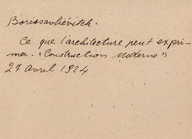 Borissavliévitch.
Ce que l'architecture peut expri-
mer. "Construction Moderne"
27 avril 1924